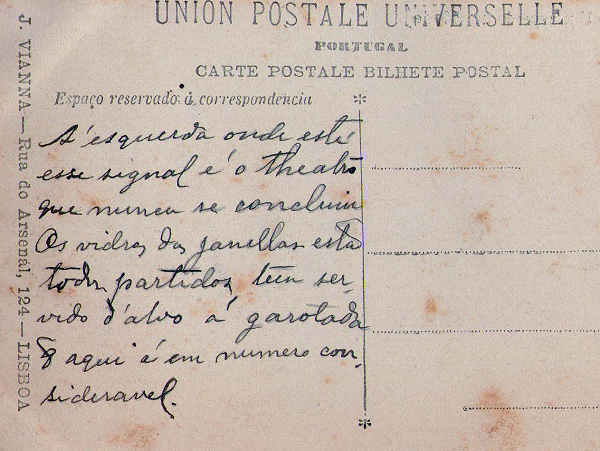 UNION POSTALE UNIVERSELLE
PORTUGAL
CARTE POSTALE BILHETE POSTAL
Espaço reservado á correspondencia
A' esquerda onde está
esse signal é o theatro
que nunca se concluiu
Os vidros das janellas esta
todos partidos, tem ser-
vido d'alvo á garotada
q aqui é em numero con-
sideravel.
J. VIANNA — Rua do Arsenal, 124 — LISBOA